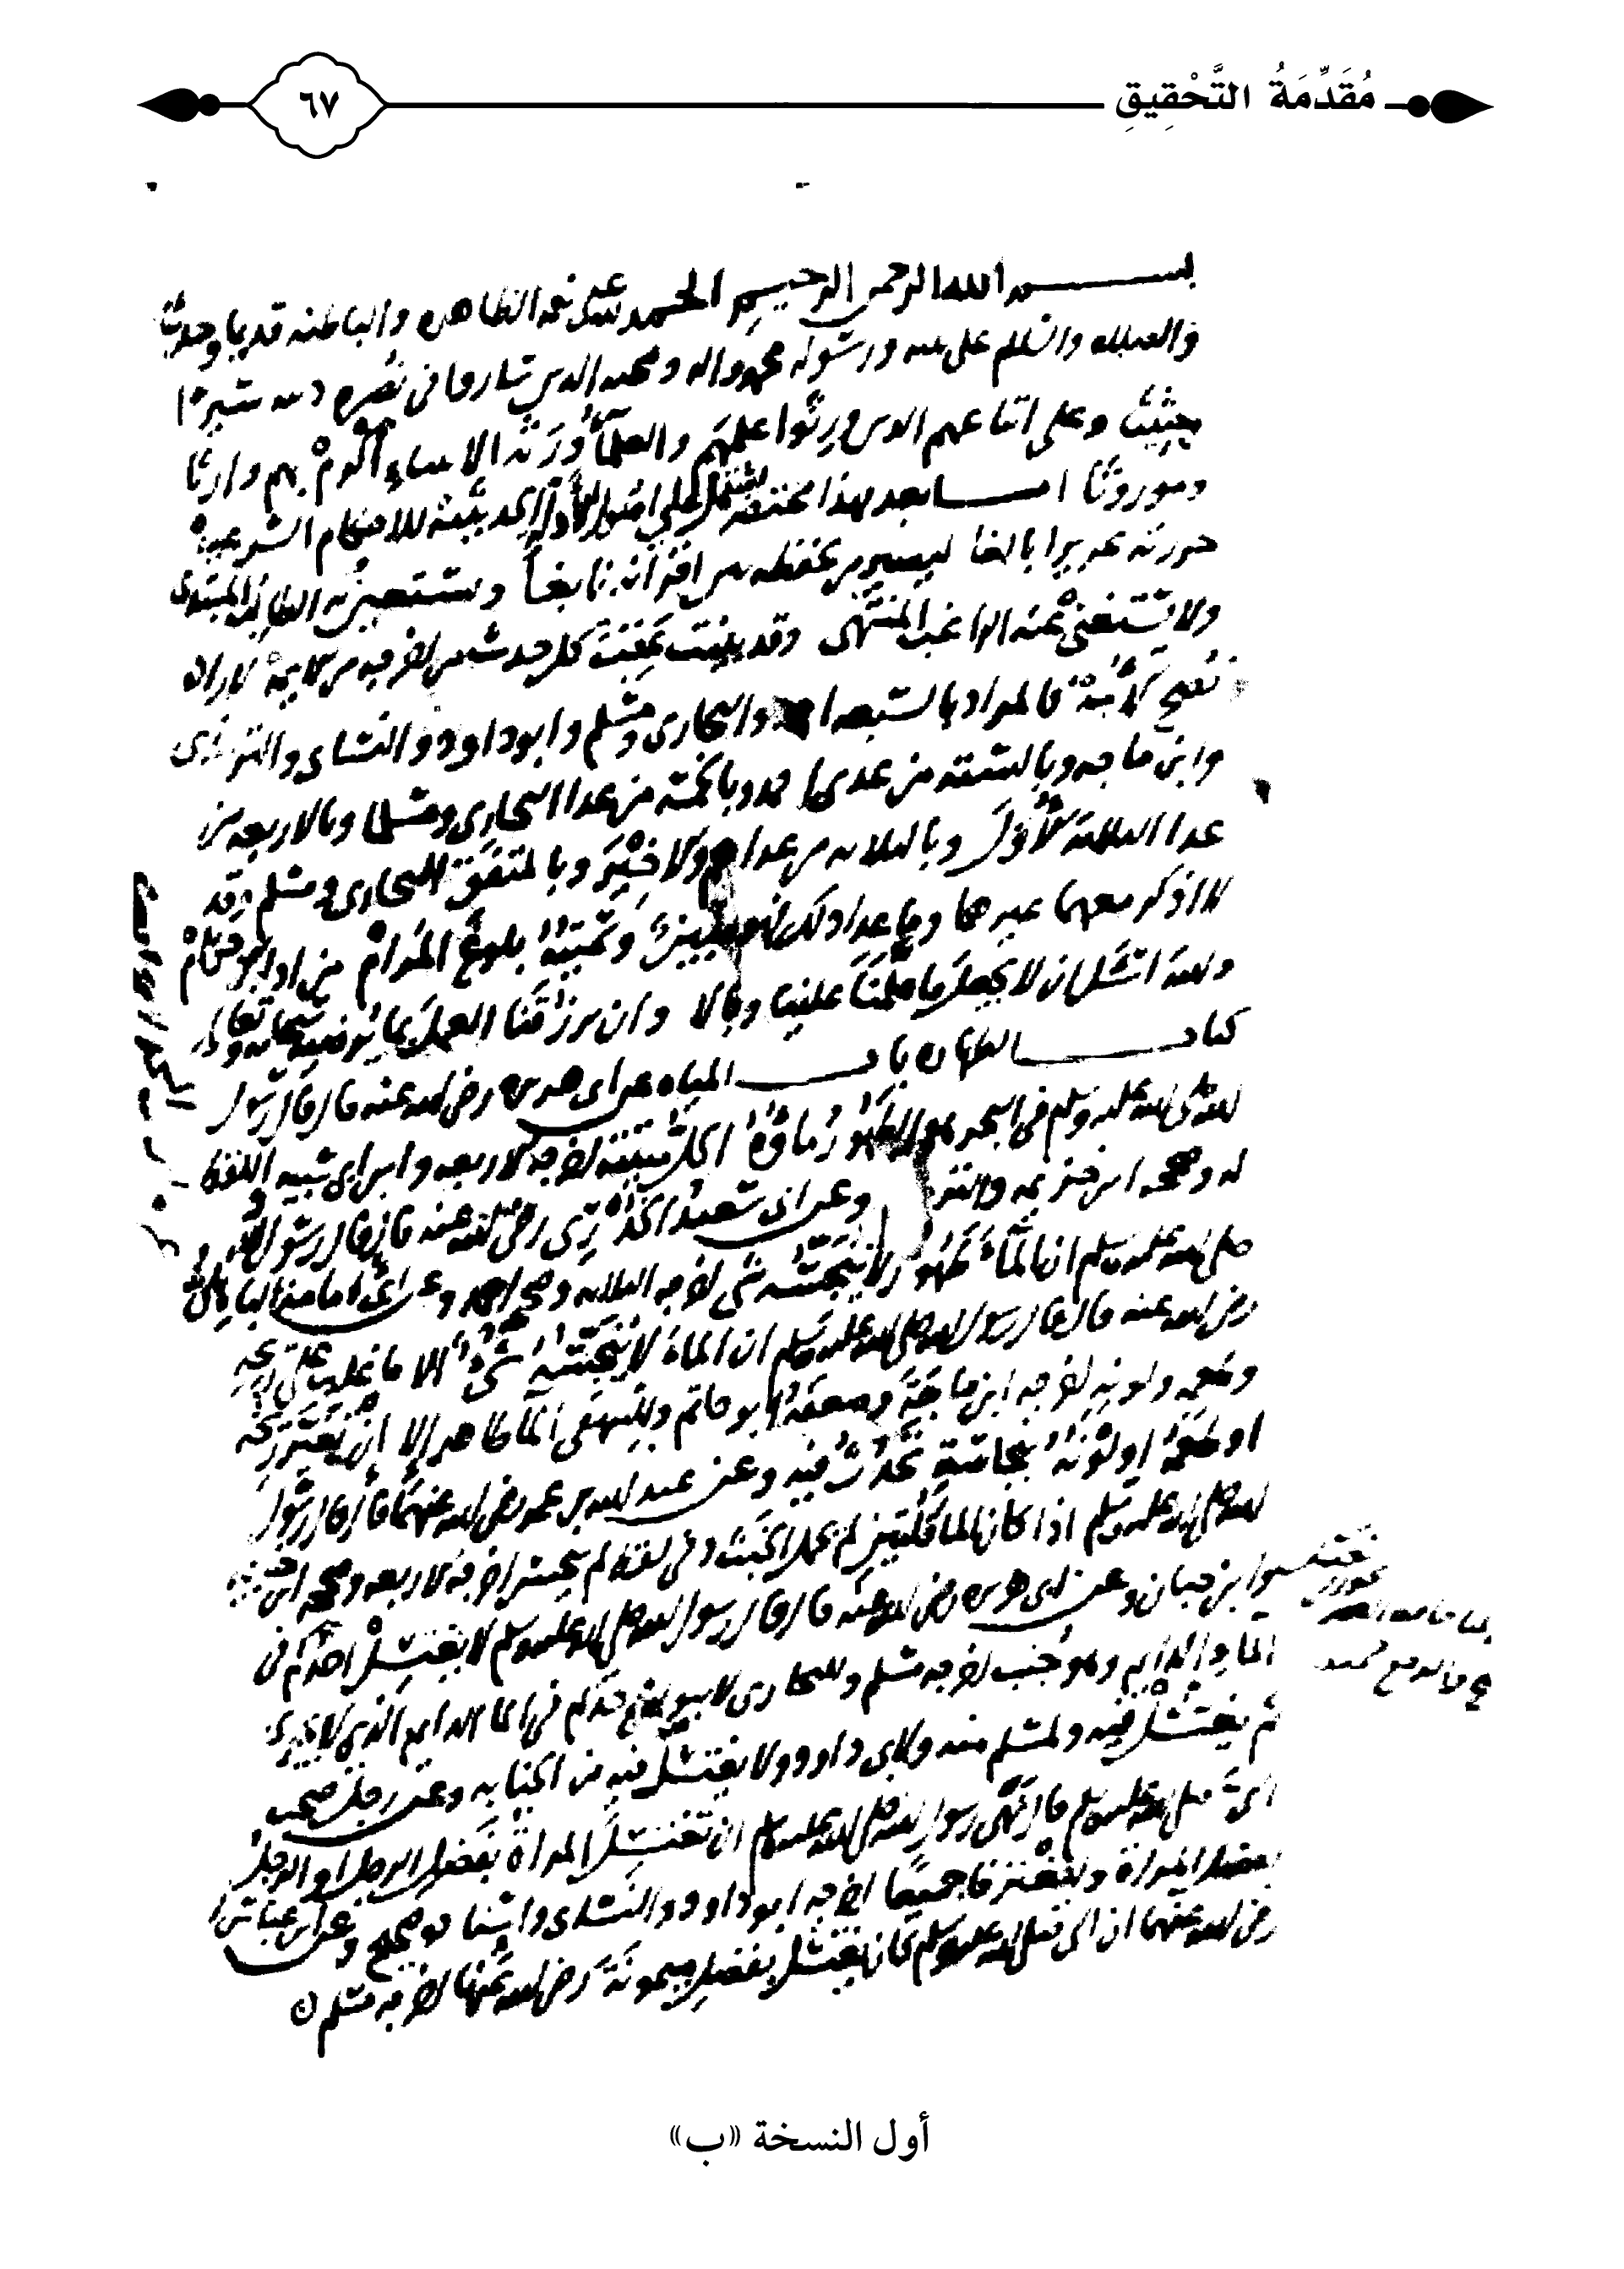 مُقَدِّمَةُ التَّحْقِيقِ
٦٧
بسم الله الرحمن الرحيم الحمد لله على نعمه الظاهره والباطنه قديما وحديثا
والصلاه والسلم على نبيه ورسوله محمد واله وصحبه الذين ساروا فى نصره دينه سيرا
حثيثا وعلى اتباعهم الذين ورثوا علمهم والعلما ورثه الانبياء أكرم بهم وارثا
وموروثا اما بعد فهذا مختصر يشتمل على اصول الأدله الحديثية للاحكام الشرعية
حررته تحريرا بالغا ليصير من يحفظه من اقرانه نابغا ويستعين به الطالب المبتدى
ولا يستغنى عنه الراغب المنتهى وقد بينت عقب كل حديث من اخرجه من الايمة لاراده
نصح الأمة فالمراد بالسبعه احمد والبخارى ومسلم وابو داود والنساى والترمذى
وابن ماجه وبالسته من عدى احمد وبالخمسه من عدا البخارى ومسلما وبالاربعه من
عدا الثلاثة الأول وبالثلاثه من عداهم والاخير وبالمتفق البخارى ومسلم وقد
لا اذكر معهما غيرهما وما عدا ذلك فهو مبين وسميته بلوغ المرام من ادله الاحكام
والله اسئل ان لا يجعل ما علمنا علينا وبالا وان يرزقنا العمل بما يرضيه سبحانه وتعالى
كتاب الطهاره باب المياه عن ابى هريره رضى الله عنه قال قال رسول
الله صلى الله عليه وسلم فى البحر هو الطهور ماؤه الحل ميتته اخرجه الاربعه وابن ابى شيبه واللفظ
له وصححه ابن خزيمه والترمذى وعن ابى سعيد الخدرى رضى الله عنه قال قال رسول الله
صلى الله عليه وسلم ان الماء طهور لا ينجسه شى اخرجه الثلاثه وصححه احمد وعن ابى امامة الباهلى
رضى الله عنه قال قال رسول الله صلى الله عليه وسلم ان الماء لا ينجسه شئ الا ما غلب على ريحه
وطعمه ولونه اخرجه ابن ماجة وضعفه ابو حاتم وللبيهقى الما طاهر إلا إن تغير ريحه
او طعمه او لونه بنجاسة تحدث فيه وعن عبد الله بن عمر رضى الله عنهما قال قال رسول
الله صلى الله عليه وسلم اذا كان الما قلتين لم يحمل الخبث وفى لفظ لم ينجس اخرجه الاربعه وصححه ابن خزيمه
وابن حبان وعن ابى هريره رضى الله عنه قال قال رسول الله صلى الله عليه وسلم لا يغتسل احدكم فى
الماء الدايم وهو جنب اخرجه مسلم وللبخارى لا يبولن احدكم فى الما الدايم الذى لا يجرى
ثم يغتسل فيه ولمسلم منه ولابى داوود ولا يغتسل فيه من الجنابه وعن رجل صحب
النبى صلى الله عليه وسلم قال نهى رسول الله صلى الله عليه وسلم ان تغتسل المرأة بفضل الرجل او الرجل
بفضل المرأة وليغترفا جميعا اخرجه ابو داوود والنساى واسناده صحيح وعن ابن عباس
رضى الله عنهما ان النبى صلى الله عليه وسلم كان يغتسل بفضل ميمونة رضى الله عنها اخرجه مسلم
أول النسخة «ب»